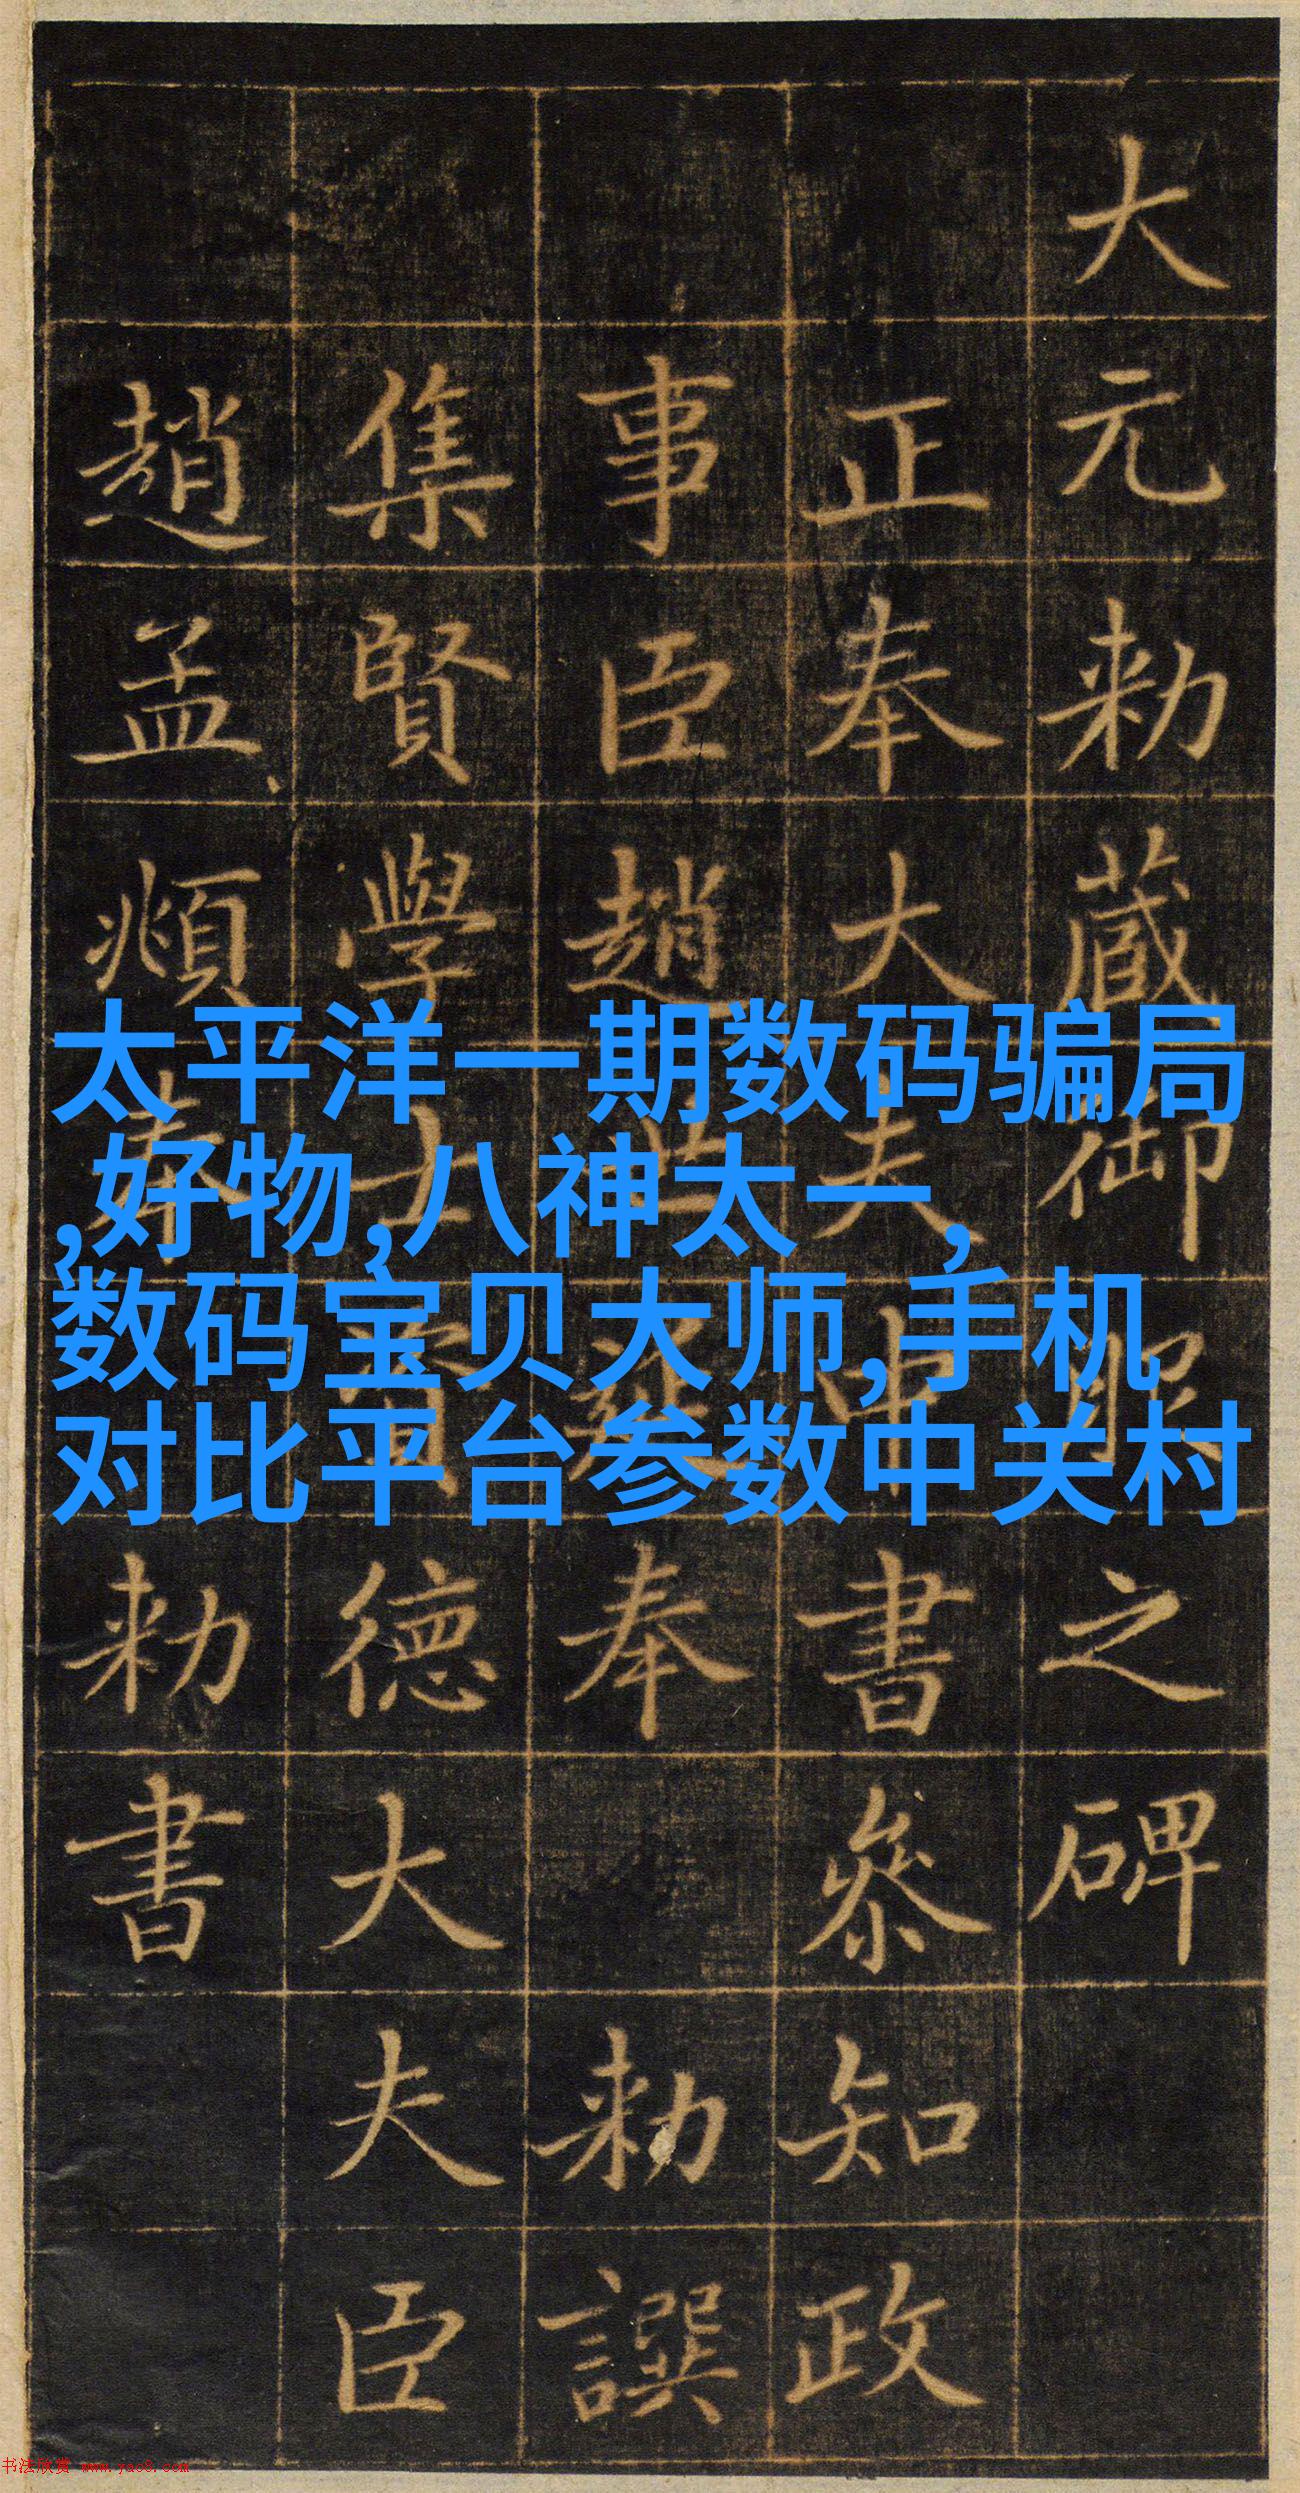 大元勅藏御服之碑
正奉大夫中書參知政
事臣趙世延奉勅譔
集賢學士資德大夫臣
趙孟頫奉勅書
太平洋一期数码骗局
,好物,八神太一,
数码宝贝大师,手机
对比平台参数中关村
书法欣赏 www.yac8.com